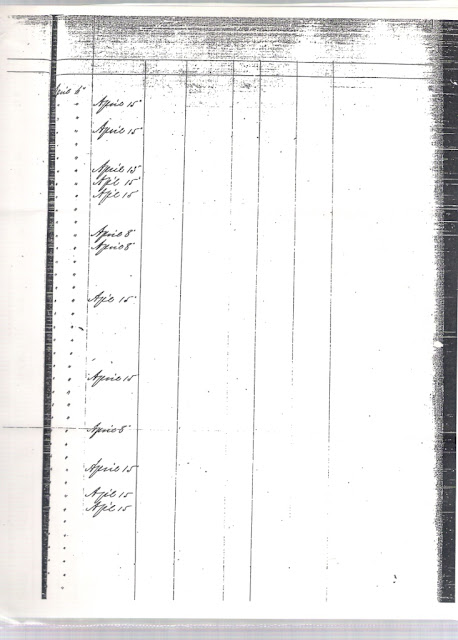 April 6
" April 15
"
" April 15
"
"
" April 15
" Apl 15
" Apl 15
"
"
" April 8
" April 8
"
"
"
" Apl 15
"
"
"
"
"
" April 15
"
"
"
" April 8
"
"
" April 15
"
" Apl 15
" Apl 15
"
"
"
"
"
"